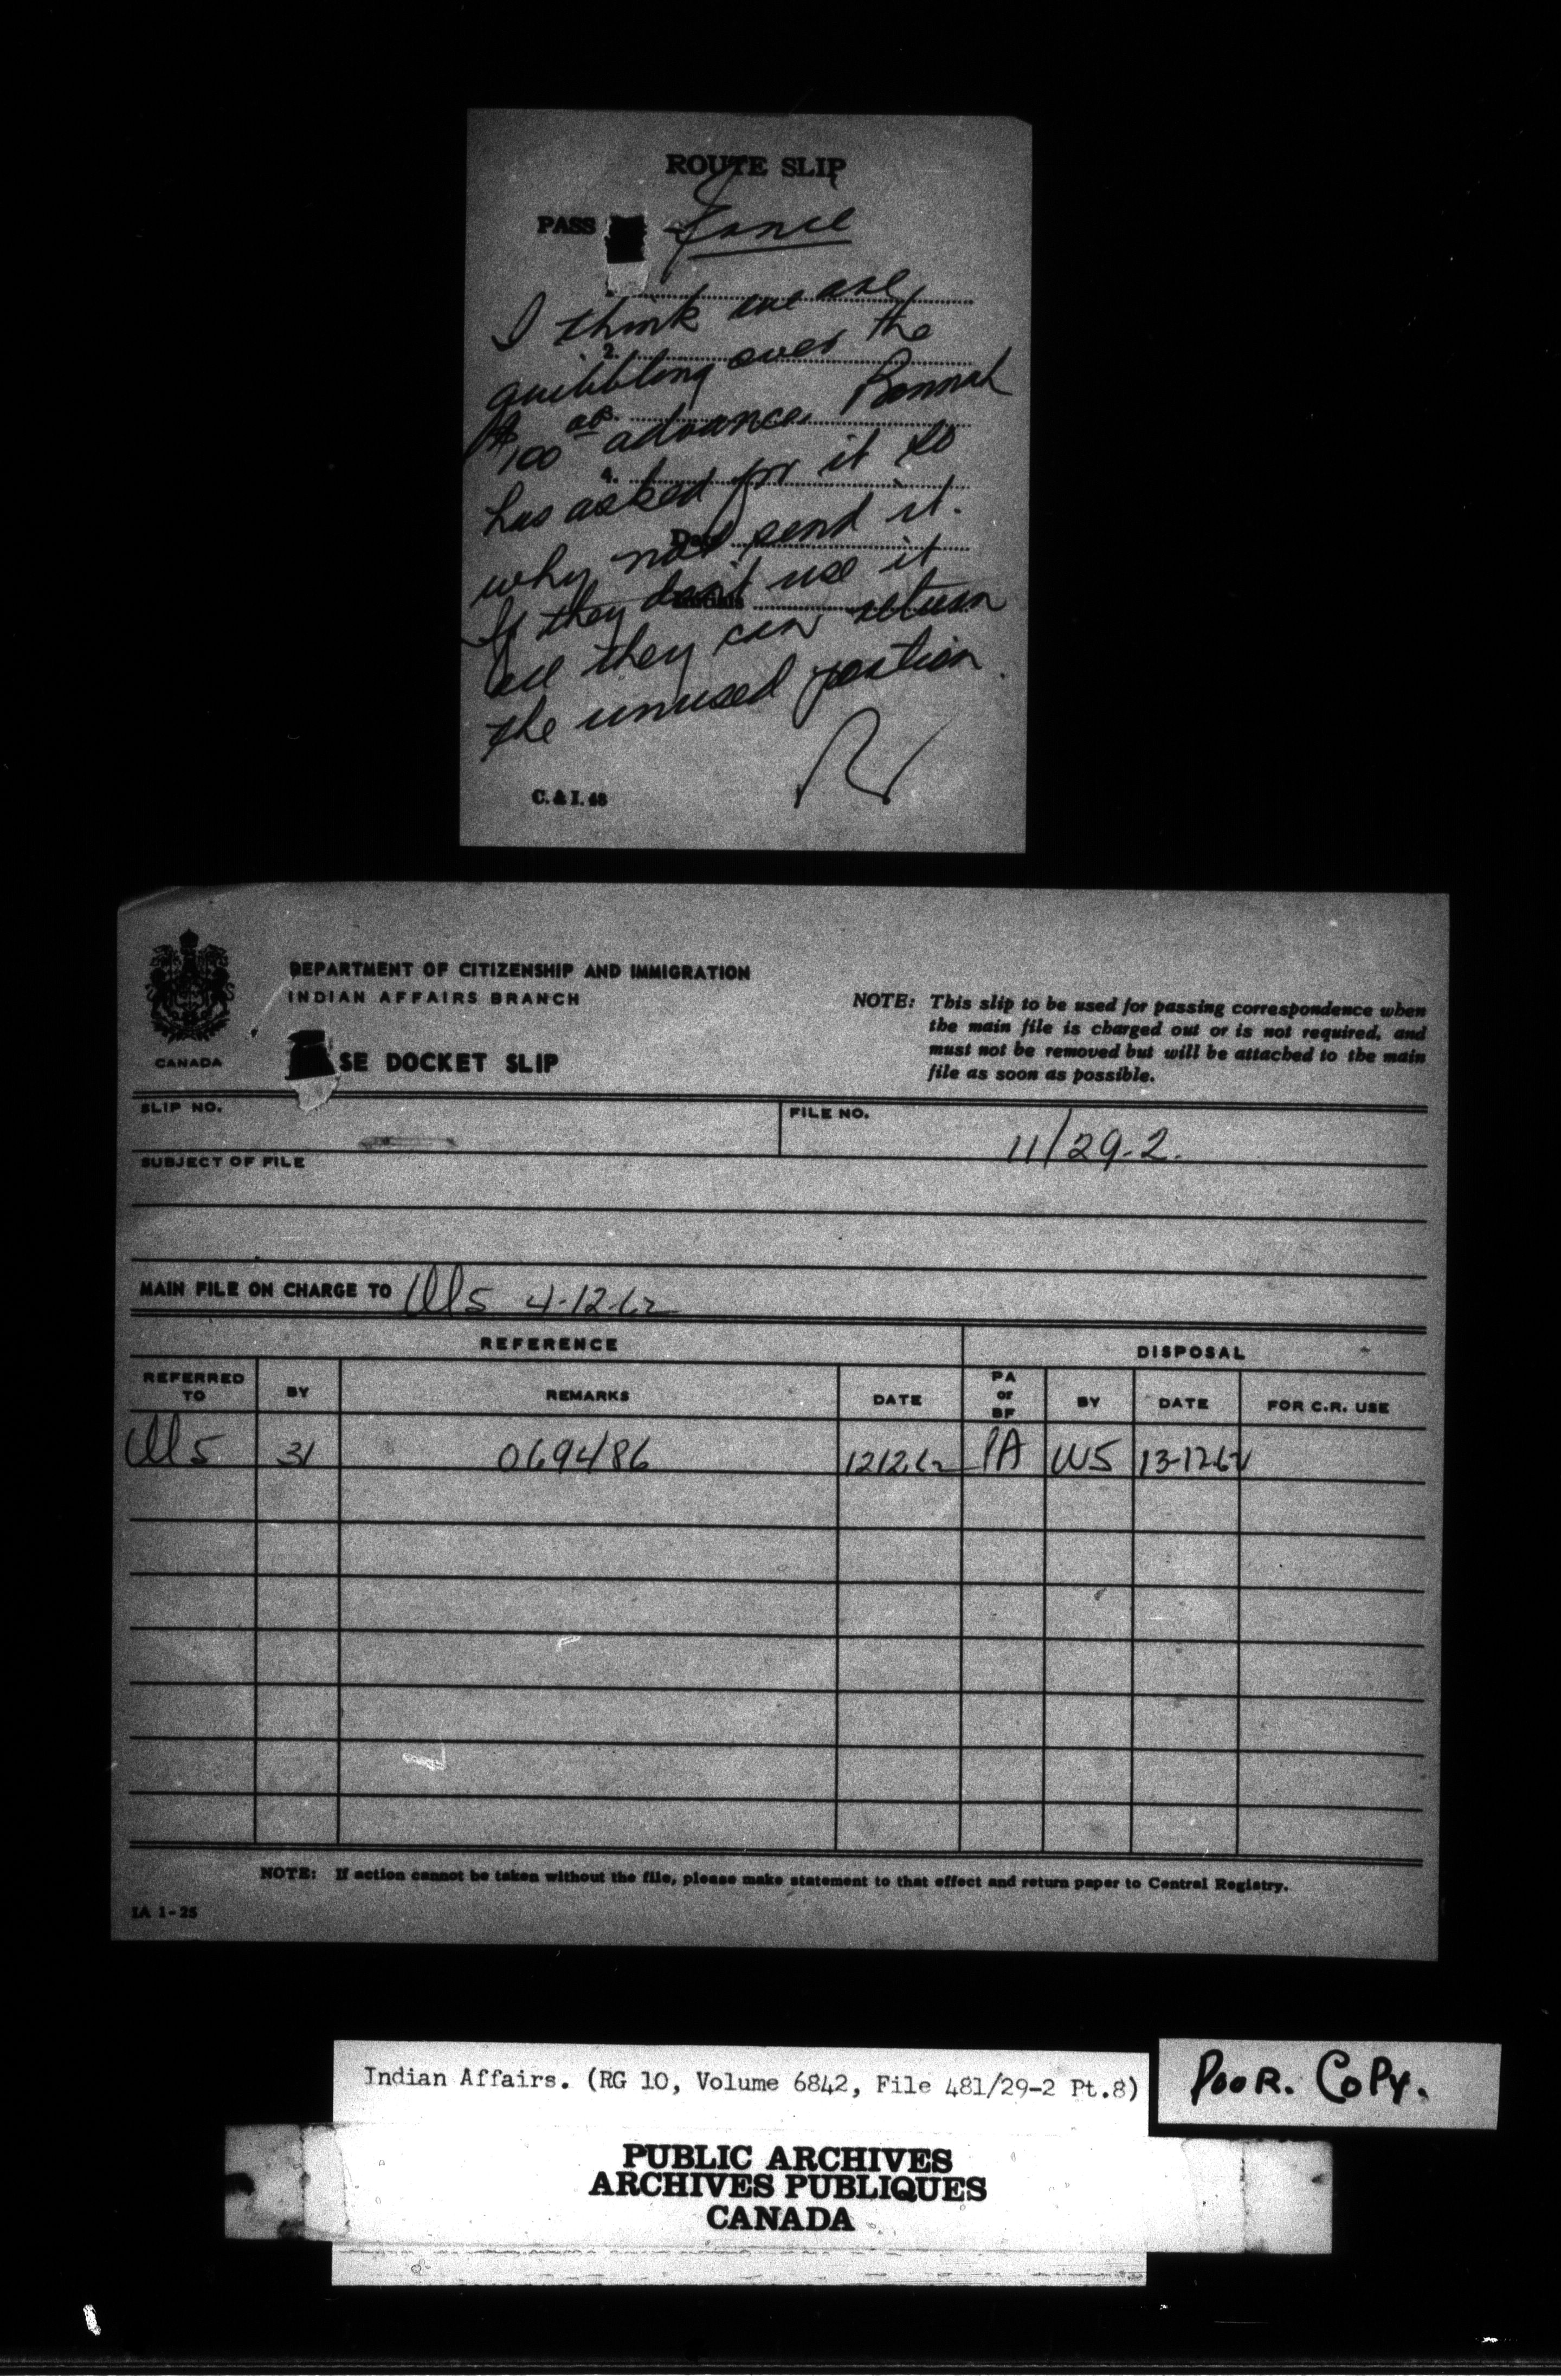 ROUTE SLIP
PASS
I think we are
2.
quibbling over the
$100 00 advance. Bonnah
4.
has asked for it so
why not send it.
If they don't use it
all they can return
the unused portion.
R
C. & I. 48
DEPARTMENT OF CITIZENSHIP AND IMMIGRATION
INDIAN AFFAIRS BRANCH
CANADA
SE DOCKET SLIP
NOTE: This slip to be used for passing correspondence when
the main file is charged out or is not required, and
must not be removed but will be attached to the main
file as soon as possible.
SLIP NO.
FILE NO.
11/29-2.
SUBJECT OF FILE
MAIN FILE ON CHARGE TO W5 4-12-62
REFERENCE DISPOSAL
REFERRED TO BY REMARKS DATE PA or BF BY DATE FOR C.R. USE
W5 31 069486 12.12.62 PA W5 13-12-62
NOTE: If action cannot be taken without the file, please make statement to that effect and return paper to Central Registry.
IA 1-25
Indian Affairs. (RG 10, Volume 6842, File 481/29-2 Pt.8)
POOR. COPY.
PUBLIC ARCHIVES
ARCHIVES PUBLIQUES
CANADA